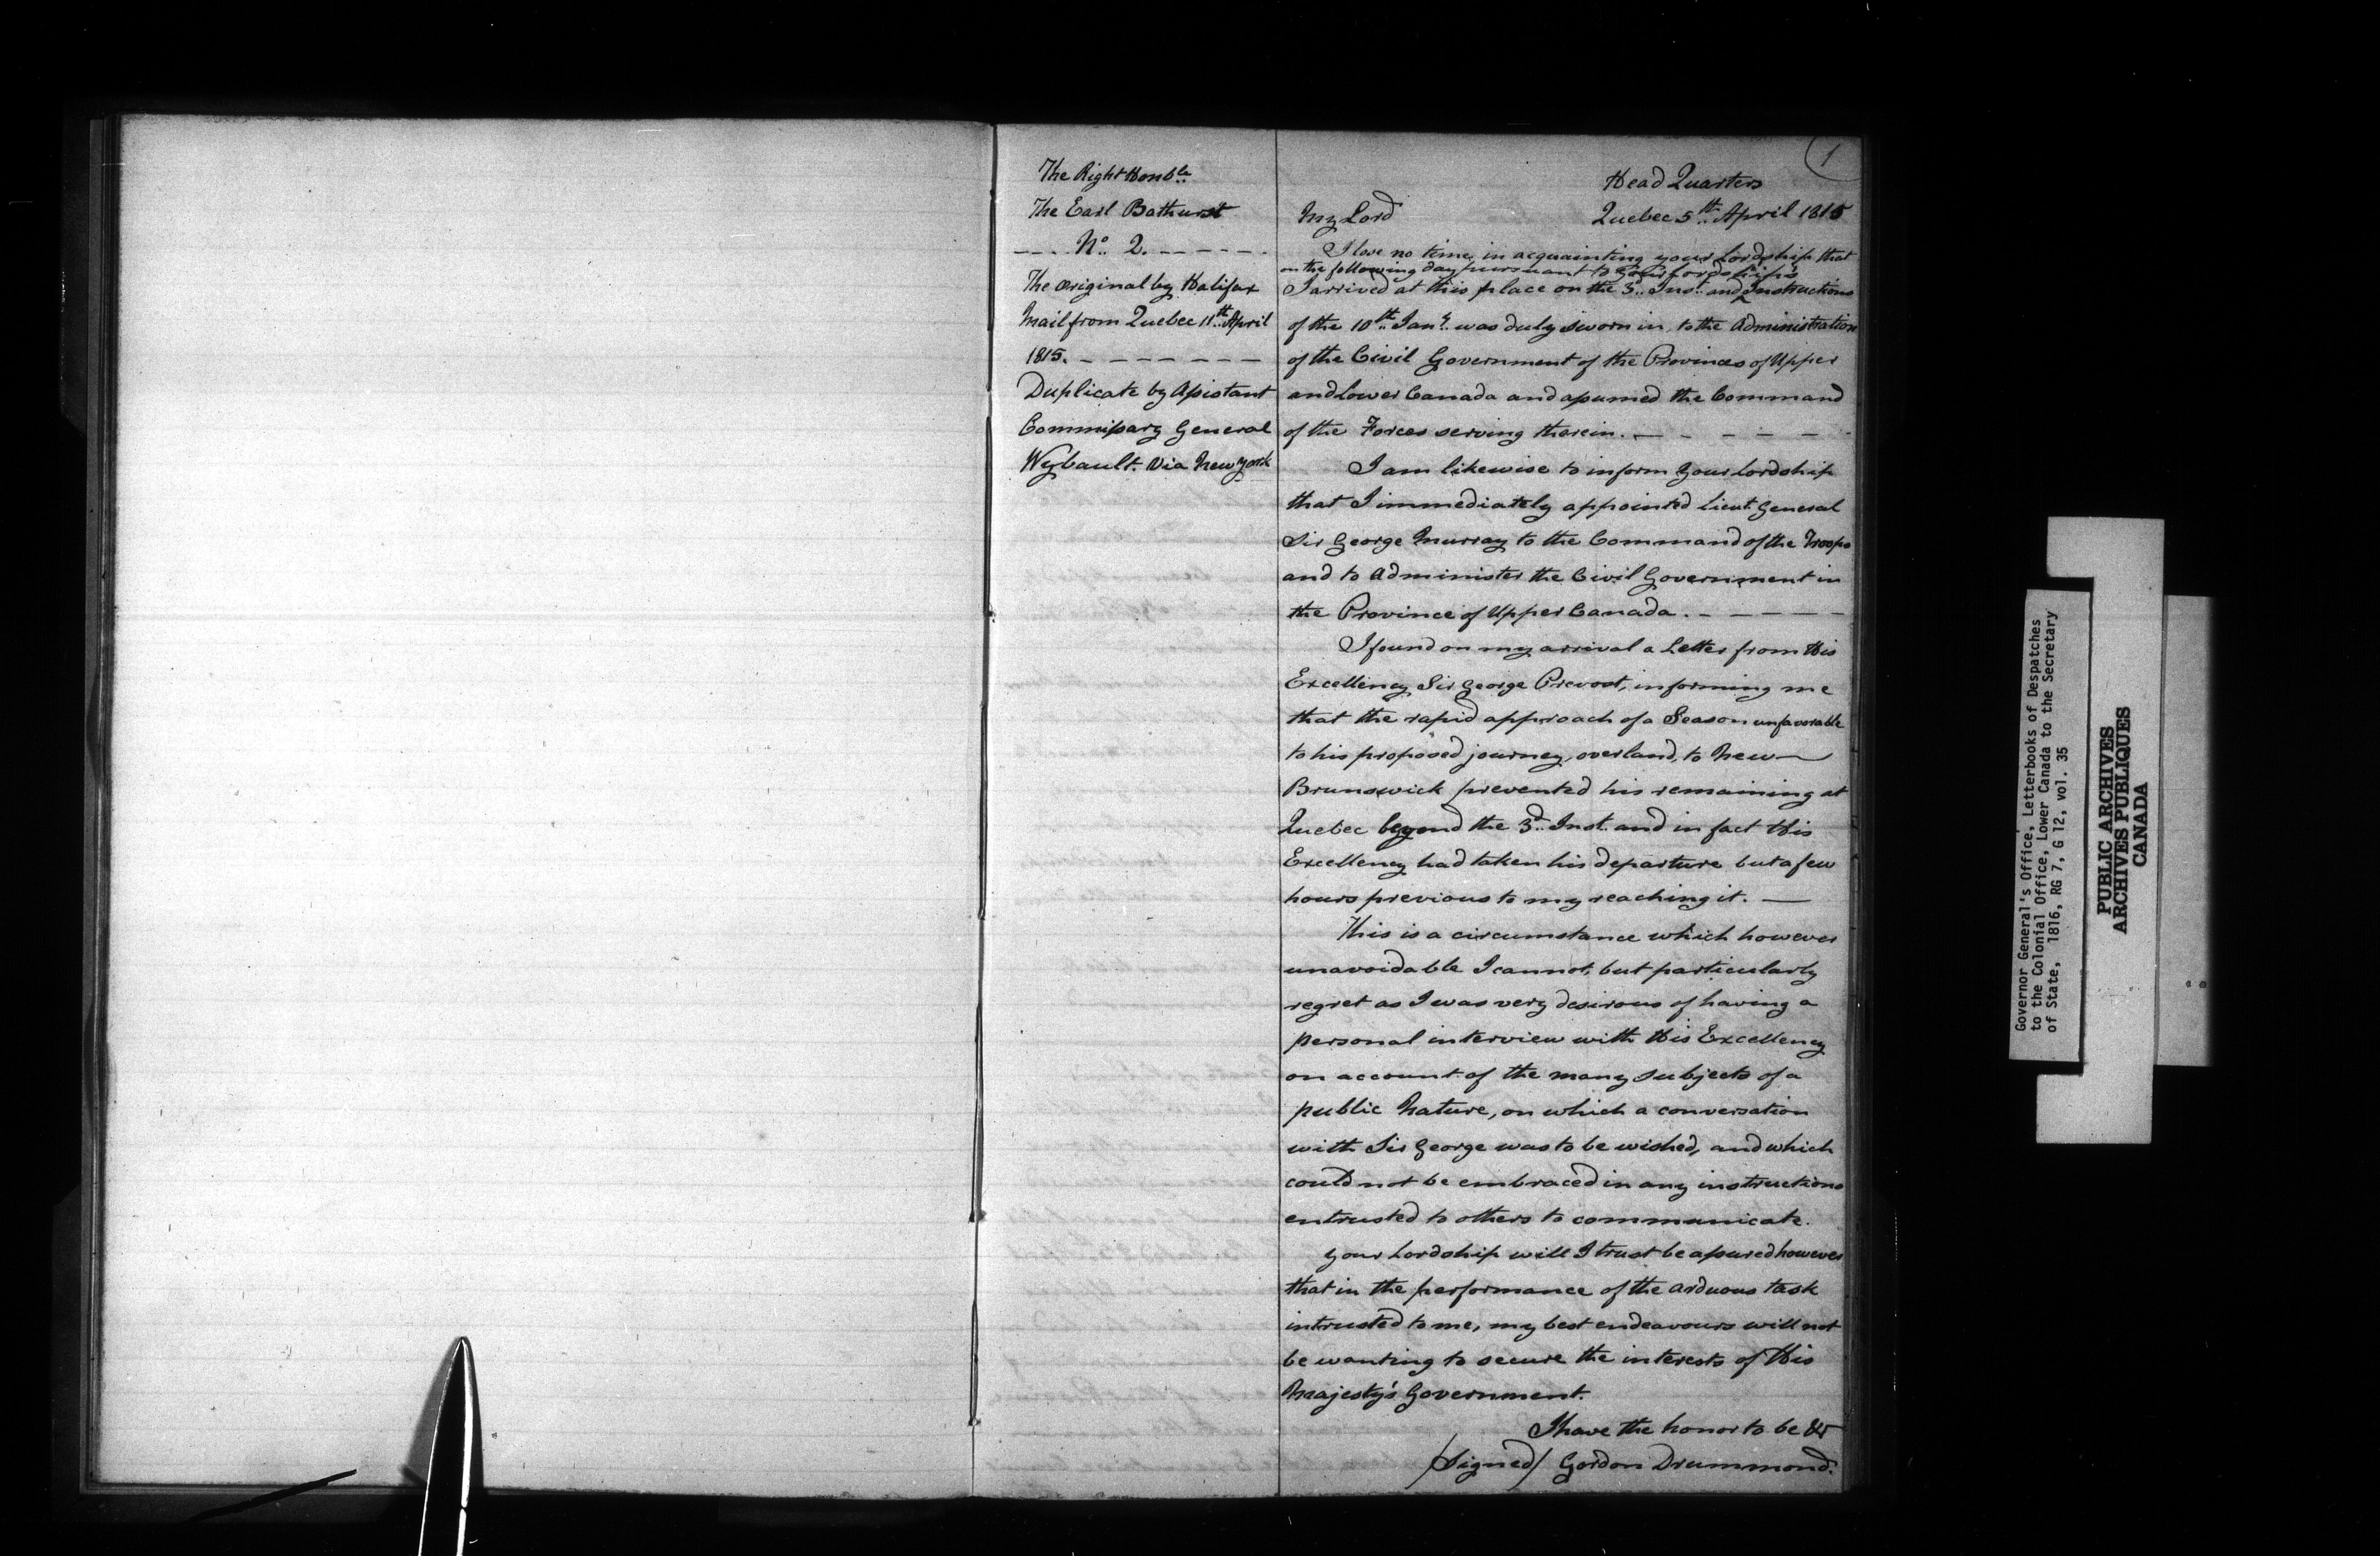 1
The Right Honble
The Earl Bathurst
No. 2.
The Original by Halifax
Mail from Quebec 11th April
1815.
Duplicate by Assistant
Commissary General
Wybault. Via New York
Head Quarters
My Lord Quebec 5th April 1815
I lose no time in acquainting your Lordship that
on the following day pursuant to your Lordship's
I arrived at this place on the 3d Inst. and Instructions
of the 10th Jany. was duly sworn in, to the Administration
of the Civil Government of the Provinces of Upper
and Lower Canada and assumed the Command
of the Forces serving therein.
I am likewise to inform your Lordship
that I immediately appointed Lieut. General
Sir George Murray to the Command of the Troops
and to administer the Civil Government in
the Province of Upper Canada.
I found on my arrival a Letter from His
Excellency Sir George Prevost, informing me
that the rapid approach of a Season unfavorable
to his proposed journey, overland, to New
Brunswick prevented his remaining at
Quebec beyond the 3d. Inst. and in fact His
Excellency had taken his departure but a few
hours previous to my reaching it.
This is a circumstance which however
unavoidable I cannot, but particularly
regret as I was very desirous of having a
personal interview with His Excellency
on account of the many subjects of a
public Nature, on which a conversation
with Sir George was to be wished, and which
could not be embraced in any instructions
entrusted to others to communicate.
Your Lordship will I trust be assured however
that in the performance of the arduous task
intrusted to me, my best endeavours will not
be wanting to secure the interests of His
Majesty's Government.
I have the honor to be &c
/Signed/ Gordon Drummond.
Governor General's Office, Letterbooks of Despatches
to the Colonial Office, Lower Canada to the Secretary
of State, 1816, RG 7, G 12, vol. 35
PUBLIC ARCHIVES
ARCHIVES PUBLIQUES
CANADA